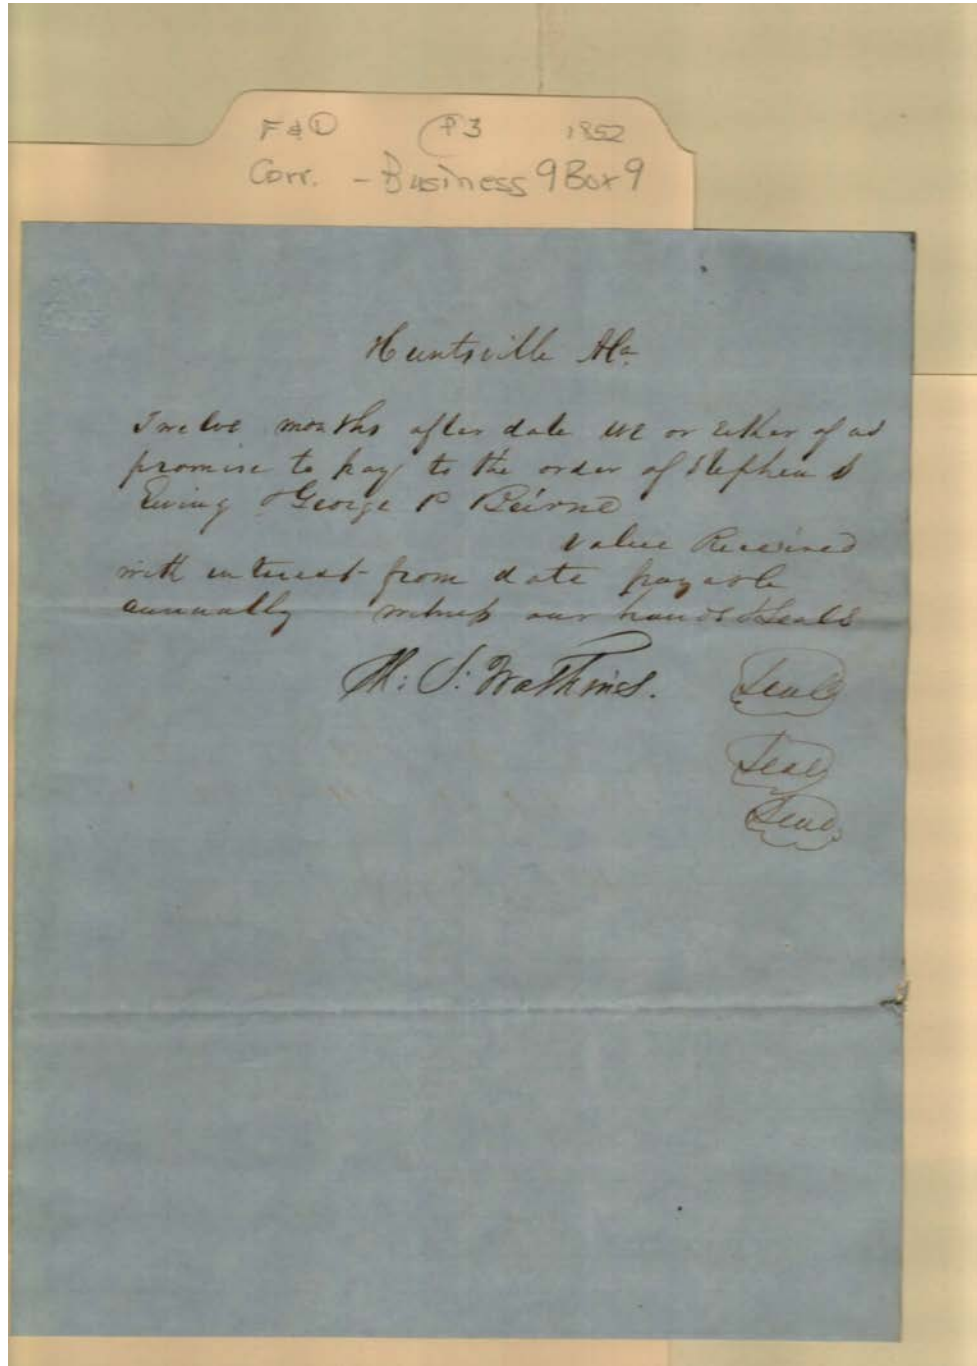 F & D P3 1852
Corr. - Business 9 Box 9
Huntsville Ala
Twelve months after date we or either of us
promise to pay to the order of Stephen S
Ewing & George P Beirne
Value Received
with interest from date payable
annually witness our hands & Seals
S. Watkins.
Seal
Seal
Seal